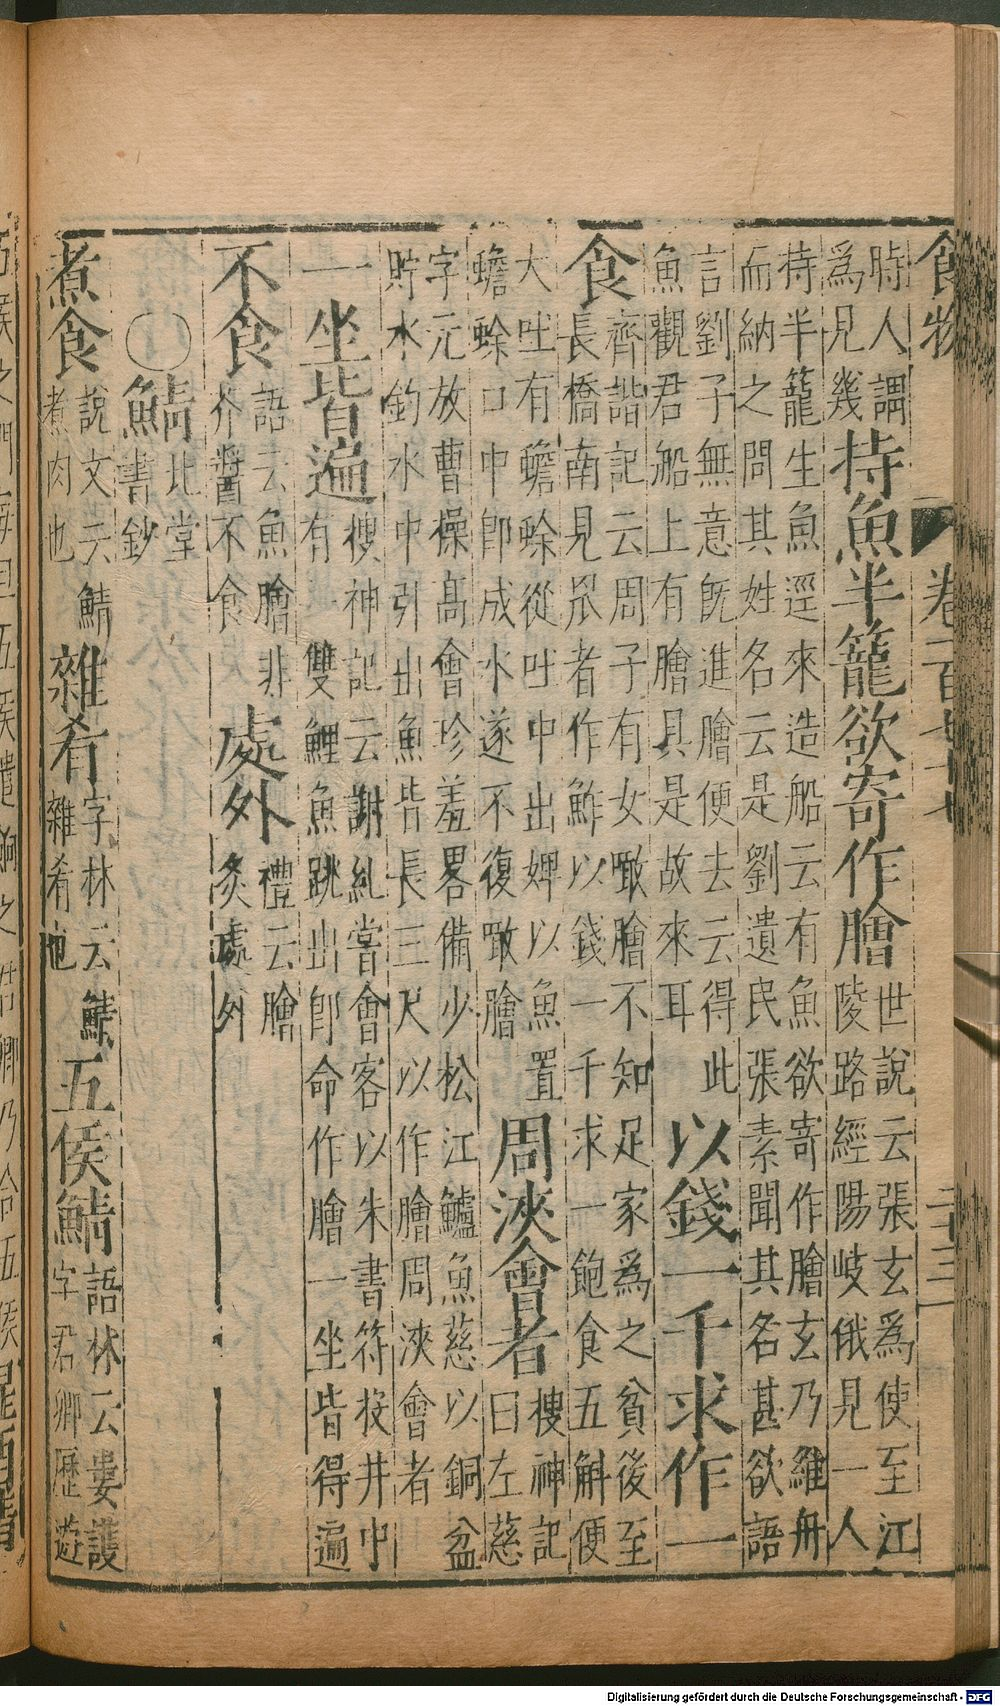 食物 卷二百四十七 二十三
時人謂
為見幾
持魚半籠欲寄作膾
世說云張玄為使至江
陵路經陽岐俄見一人
持半籠生魚逕來造船云有魚欲寄作膾玄乃維舟
而納之問其姓名云是劉遺民張素聞其名甚欲語
言劉子無意既進膾便去云得此
魚觀君船上有膾具是故來耳
以錢一千求作一
食
齊諧記云周子有女噉膾不知足家為之貧後至
長橋南見眾者作鮓以錢一千求一飽食五斛便
大吐有蟾蜍從吐中出婢以魚置
蟾蜍口中卽成水遂不復噉膾
周浹會者
搜神記
曰左慈
字元放曹操高會珍羞畧備少松江鱸魚慈以銅盆
貯水釣水中引出魚皆長三尺以作膾周浹會者
一坐皆遍
搜神記云謝糺嘗會客以朱書符投井中
有雙鯉魚跳出卽命作膾一坐皆得遍
不食
語云魚膾非
芥醬不食
處外
禮云膾
炙處外
○鯖
北堂
書鈔
煮食
說文云鯖
煮肉也
雜肴
字林云鯖
雜肴也
五侯鯖
語林云婁護
字君卿歷遊